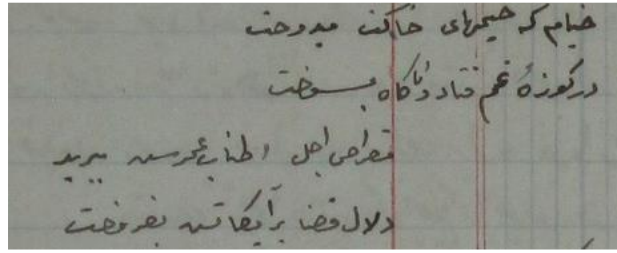 خیام که خیمهای حکمت میدوخت
در کوزهٔ غم فتاد و ناگاه بسوخت
مقراض اجل اطناب عمرش ببرید
دلال قضا برآیگانش بفروخت